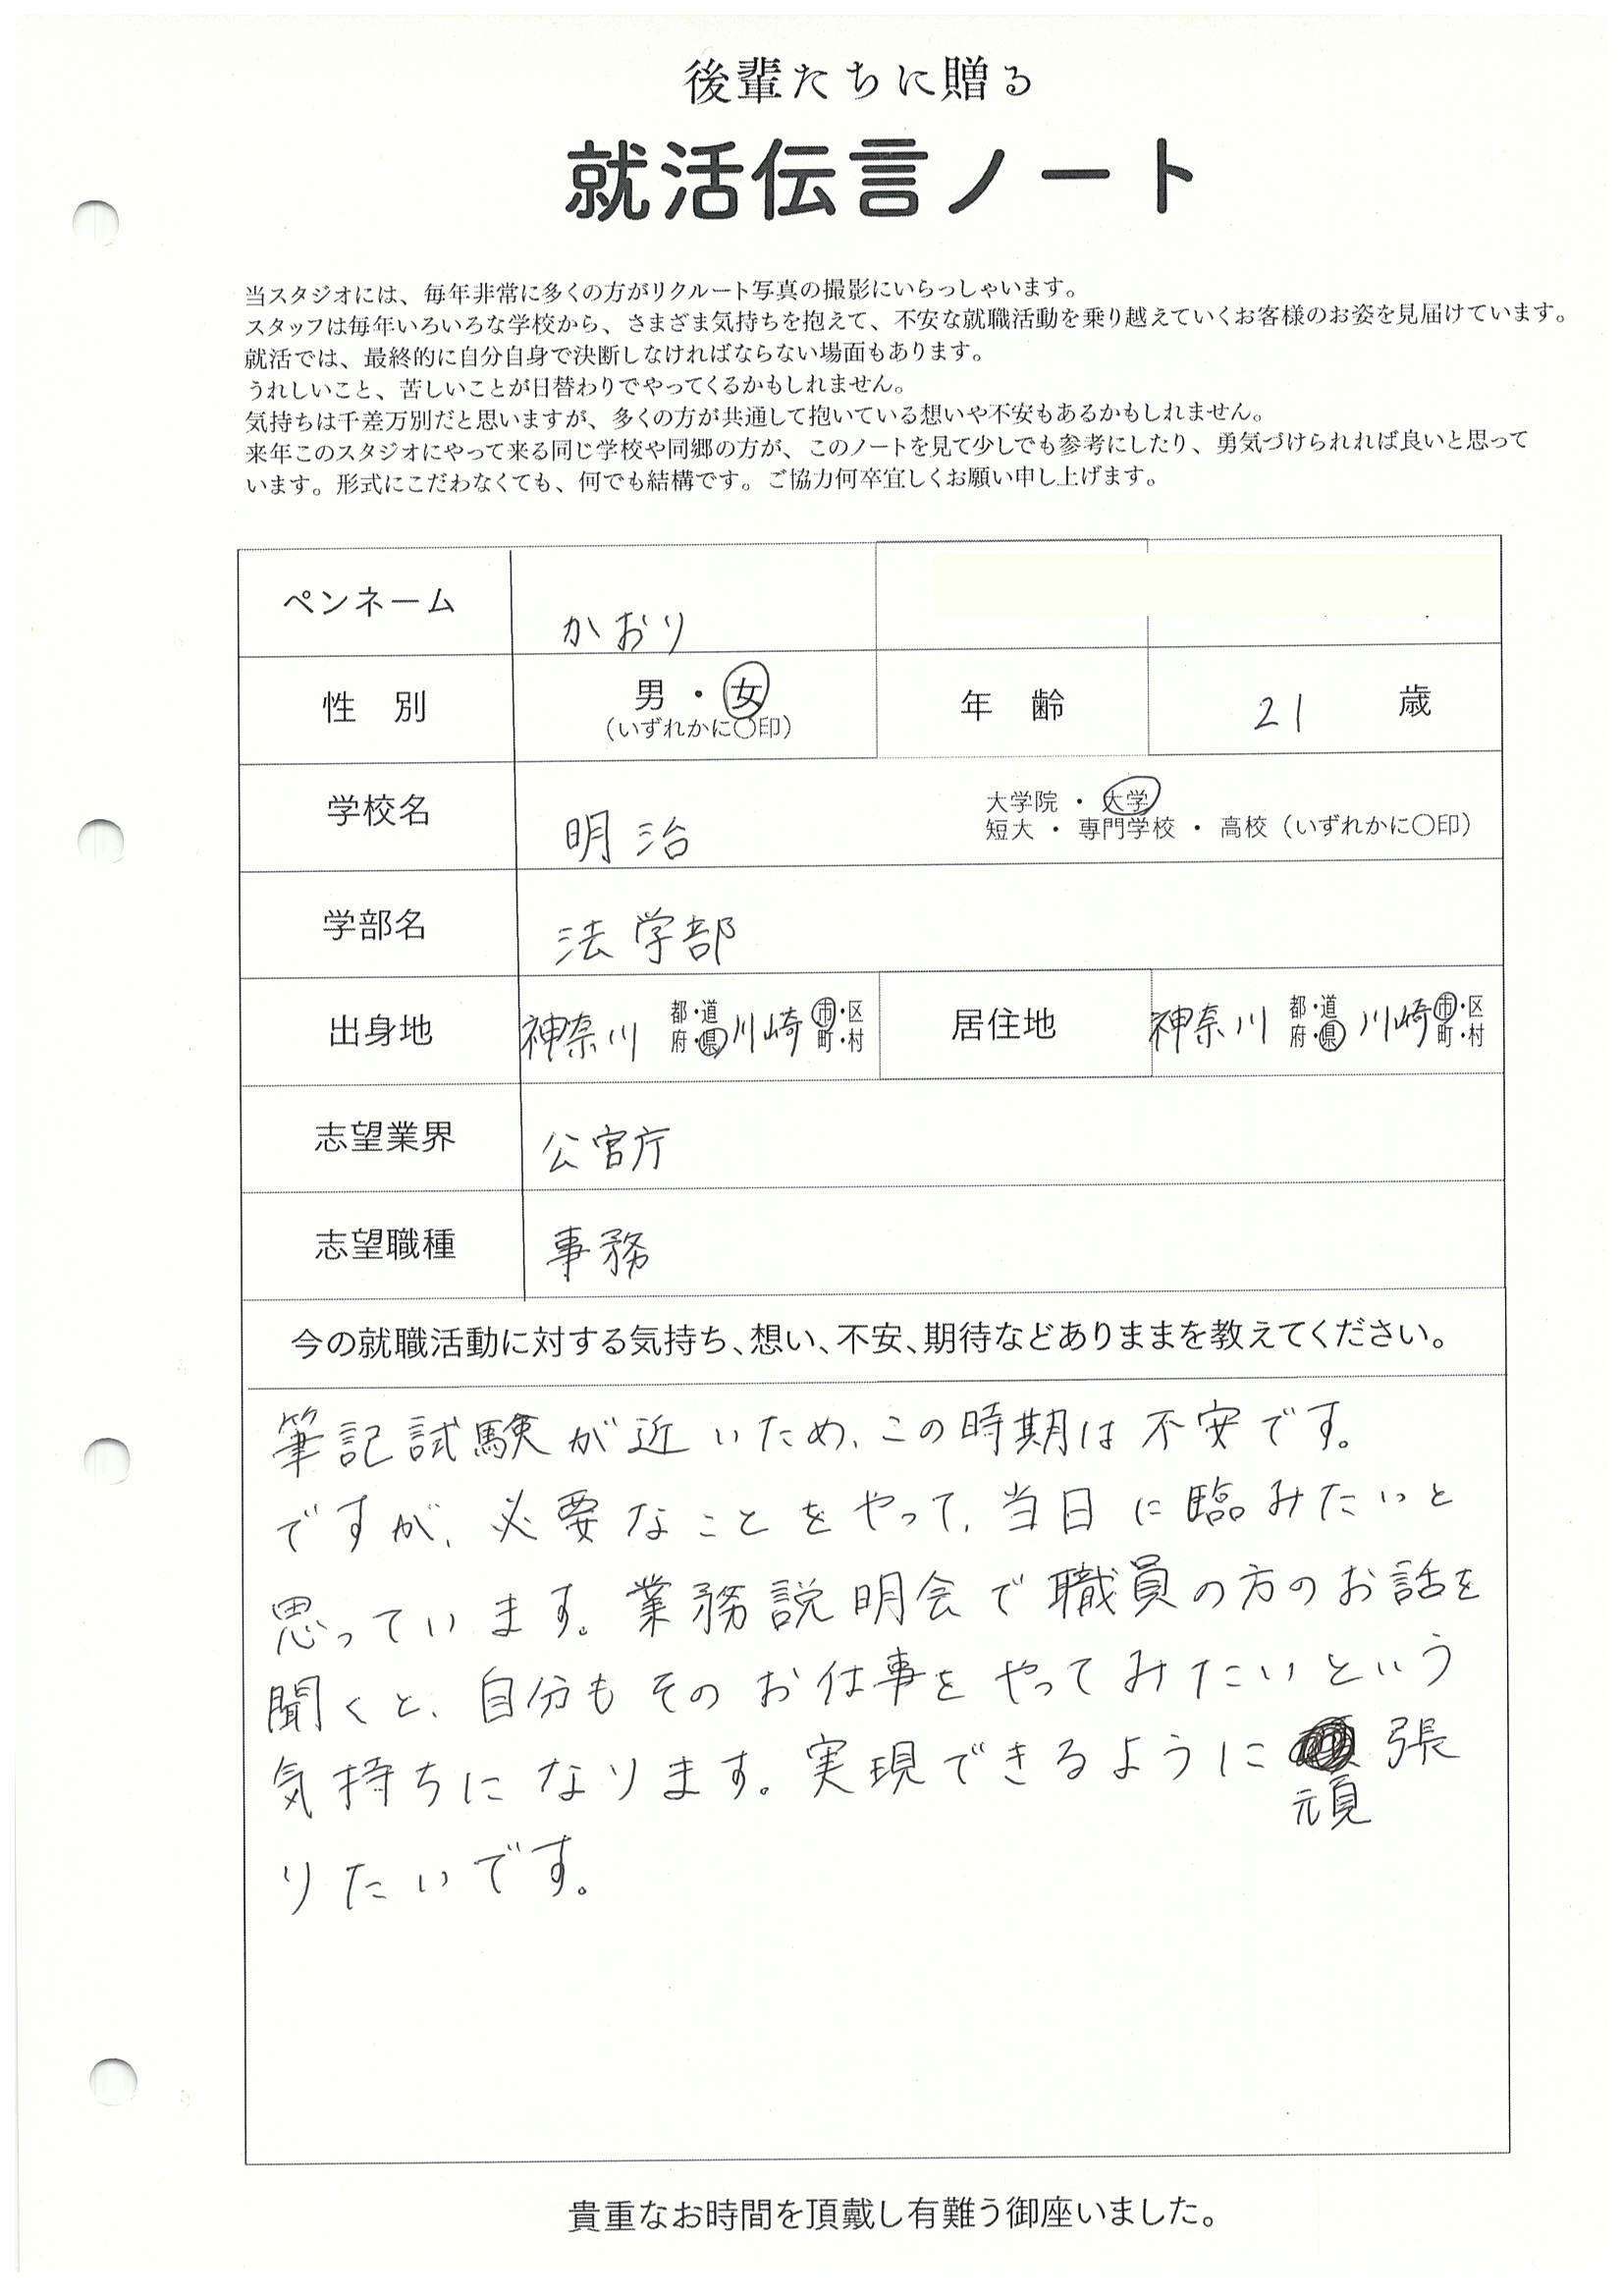 後輩たちに贈る
就活伝言ノート
当スタジオには、毎年非常に多くの方がリクルート写真の撮影にいらっしゃいます。
スタッフは毎年いろいろな学校から、さまざま気持ちを抱えて、不安な就職活動を乗り越えていくお客様のお姿を見届けています。
就活では、最終的に自分自身で決断しなければならない場面もあります。
うれしいこと、苦しいことが日替わりでやってくるかもしれません。
気持ちは千差万別だと思いますが、多くの方が共通して抱いている想いや不安もあるかもしれません。
来年このスタジオにやって来る同じ学校や同郷の方が、このノートを見て少しでも参考にしたり、勇気づけられれば良いと思って
います。形式にこだわなくても、何でも結構です。ご協力何卒宜しくお願い申し上げます。
ペンネーム かおり
性 別 男 ・ 女 年 齢 21 歳
(いずれかに〇印)
学校名 明治 大学院 ・ 大学
短大 ・ 専門学校 ・ 高校(いずれかに〇印)
学部名 法学部
出身地 神奈川 都・道府・県 川崎 市・区町・村 居住地 神奈川 都・道府・県 川崎 市・区町・村
志望業界 公官庁
志望職種 事務
今の就職活動に対する気持ち、想い、不安、期待などありままを教えてください。
筆記試験が近いため、この時期は不安です。
ですが、必要なことをやって、当日に臨みたいと
思っています。業務説明会で職員の方のお話を
聞くと、自分もそのお仕事をやってみたいという
気持ちになります。実現できるように頑張
りたいです。
貴重なお時間を頂戴し有難う御座いました。